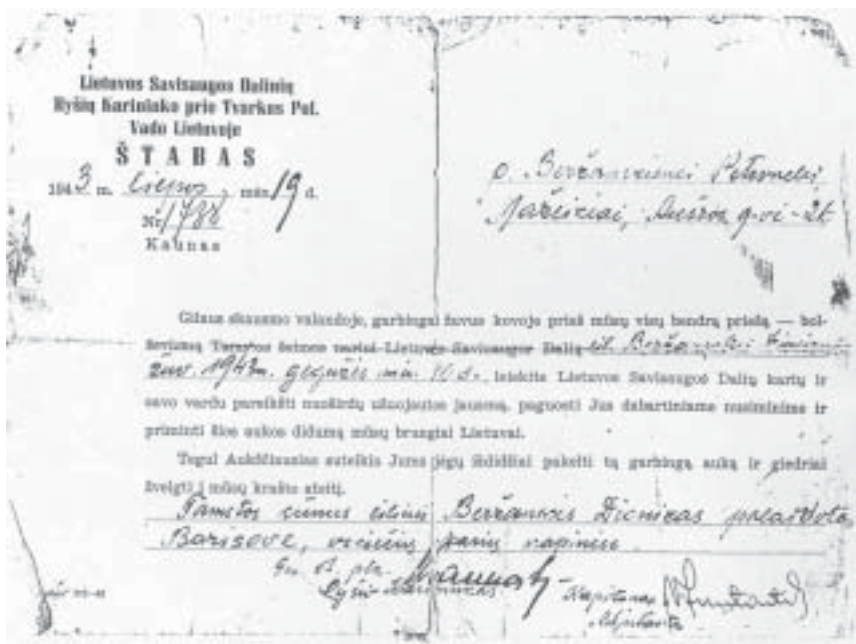 Lietuvos Savisaugos Dalinių
Ryšių Karininko prie Tvarkos Pol.
Vado Lietuvoje
ŠTABAS
1943 m. Liepos mėn. 19 d.
Nr. 1788
Kaunas
p. Beržanskienei Petronelei,
Mažeikiai, Aušros g-vė
Giliaus skausmo valandoje, garbingai žuvus kovoje prieš mūsų visų bendrą priešą — bol-
ševizmą Tamstos šeimos nariui Lietuvos Savisaugos Dalių eil.
žuv. 1943 m. gegužės mėn. 10 d., leiskite Lietuvos Savisaugos Dalių karių ir
savo vardu pareikšti nuoširdų užuojautos jausmą, paguosti Jus dabartiniame nusiminime ir
priminti šios aukos didumą mūsų brangiai Lietuvai.
Tegul Aukščiausias suteikia Jums jėgų išdidžiai pakelti tą garbingą auką ir giedriai
žvelgti į mūsų krašto ateitį.
Tamstos sūnus eilinis Beržanskis palaidota
Barisove, vokiečių karių kapinėse.
Ryšių Karininkas
Kapitonas
Adjutantas